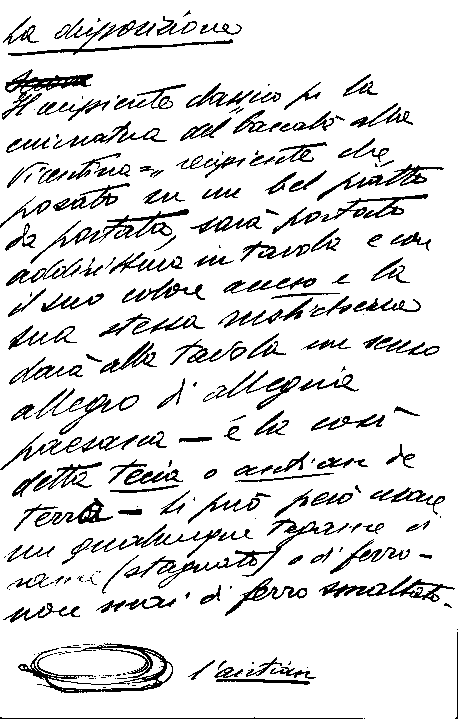 La disposizione
Il recipiente classico per la
cucinatura del baccalà alla
Vicentina = recipiente che,
posato su un bel piatto
da portata, sarà portato
addirittura in tavola e con
il suo colore acceso e la
sua stessa
darà alla tavola un senso
allegro di allegria
paesana — è la così
detta tecia o antian de
terra — si può però usare
un qualunque tegame di
rame (stagnato) o di ferro —
non mai di ferro smaltato.
l'antian